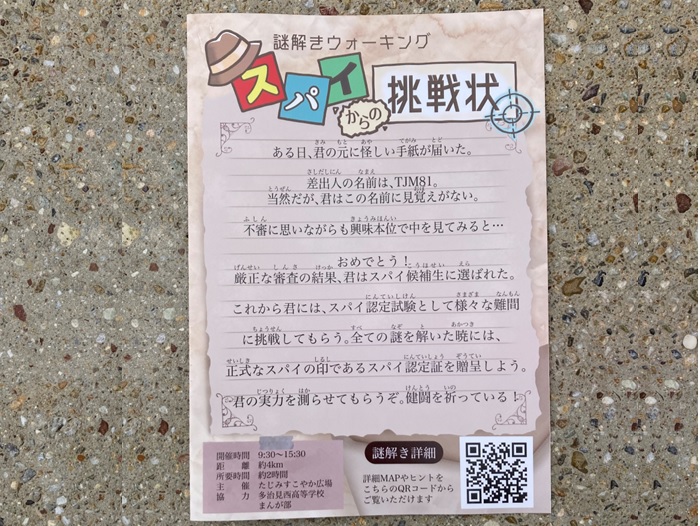 謎解きウォーキング
スパイ
からの
挑戦状
ある日、君の元に怪しい手紙が届いた。
差出人の名前は、TJM81。
当然だが、君はこの名前に見覚えがない。
不審に思いながらも興味本位で中を見てみると…
おめでとう！
厳正な審査の結果、君はスパイ候補生に選ばれた。
これから君には、スパイ認定試験として様々な難問
に挑戦してもらう。全ての謎を解いた暁には、
正式なスパイの印であるスパイ認定証を贈呈しよう。
君の実力を測らせてもらうぞ。健闘を祈っている！
開催時間 9:30～15:30
距離 約4km
所要時間 約2時間
主催 たじみすこやか広場
協力 多治見西高等学校
まんが部
謎解き詳細
詳細MAPやヒントを
こちらのQRコードから
ご覧いただけます